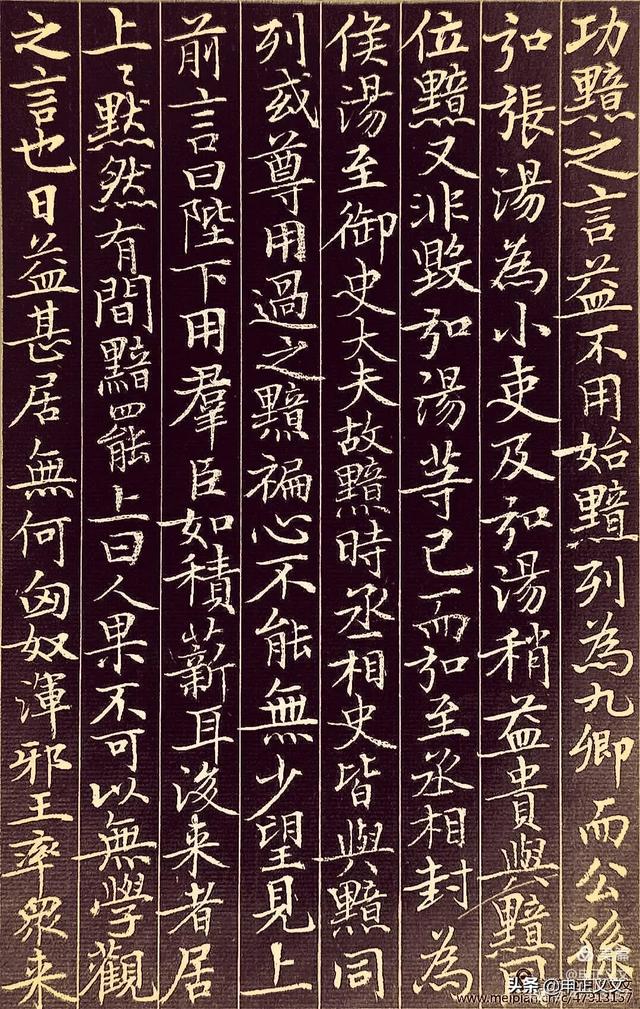 功黯之言益不用始黯列為九卿而公孫
弘張湯為小吏及弘湯稍益貴與黯同
位黯又非毀弘湯等已而弘至丞相封為
侯湯至御史大夫故黯時丞相史皆與黯同
列或尊用過之黯褊心不能無少望見上
前言曰陛下用羣臣如積薪耳後来者居
上上默然有間黯罷上曰人果不可以無學觀
之言也日益甚居無何匈奴渾邪王率衆来
美篇
头条 @申正文文
www.meipian.cn/c/47313157